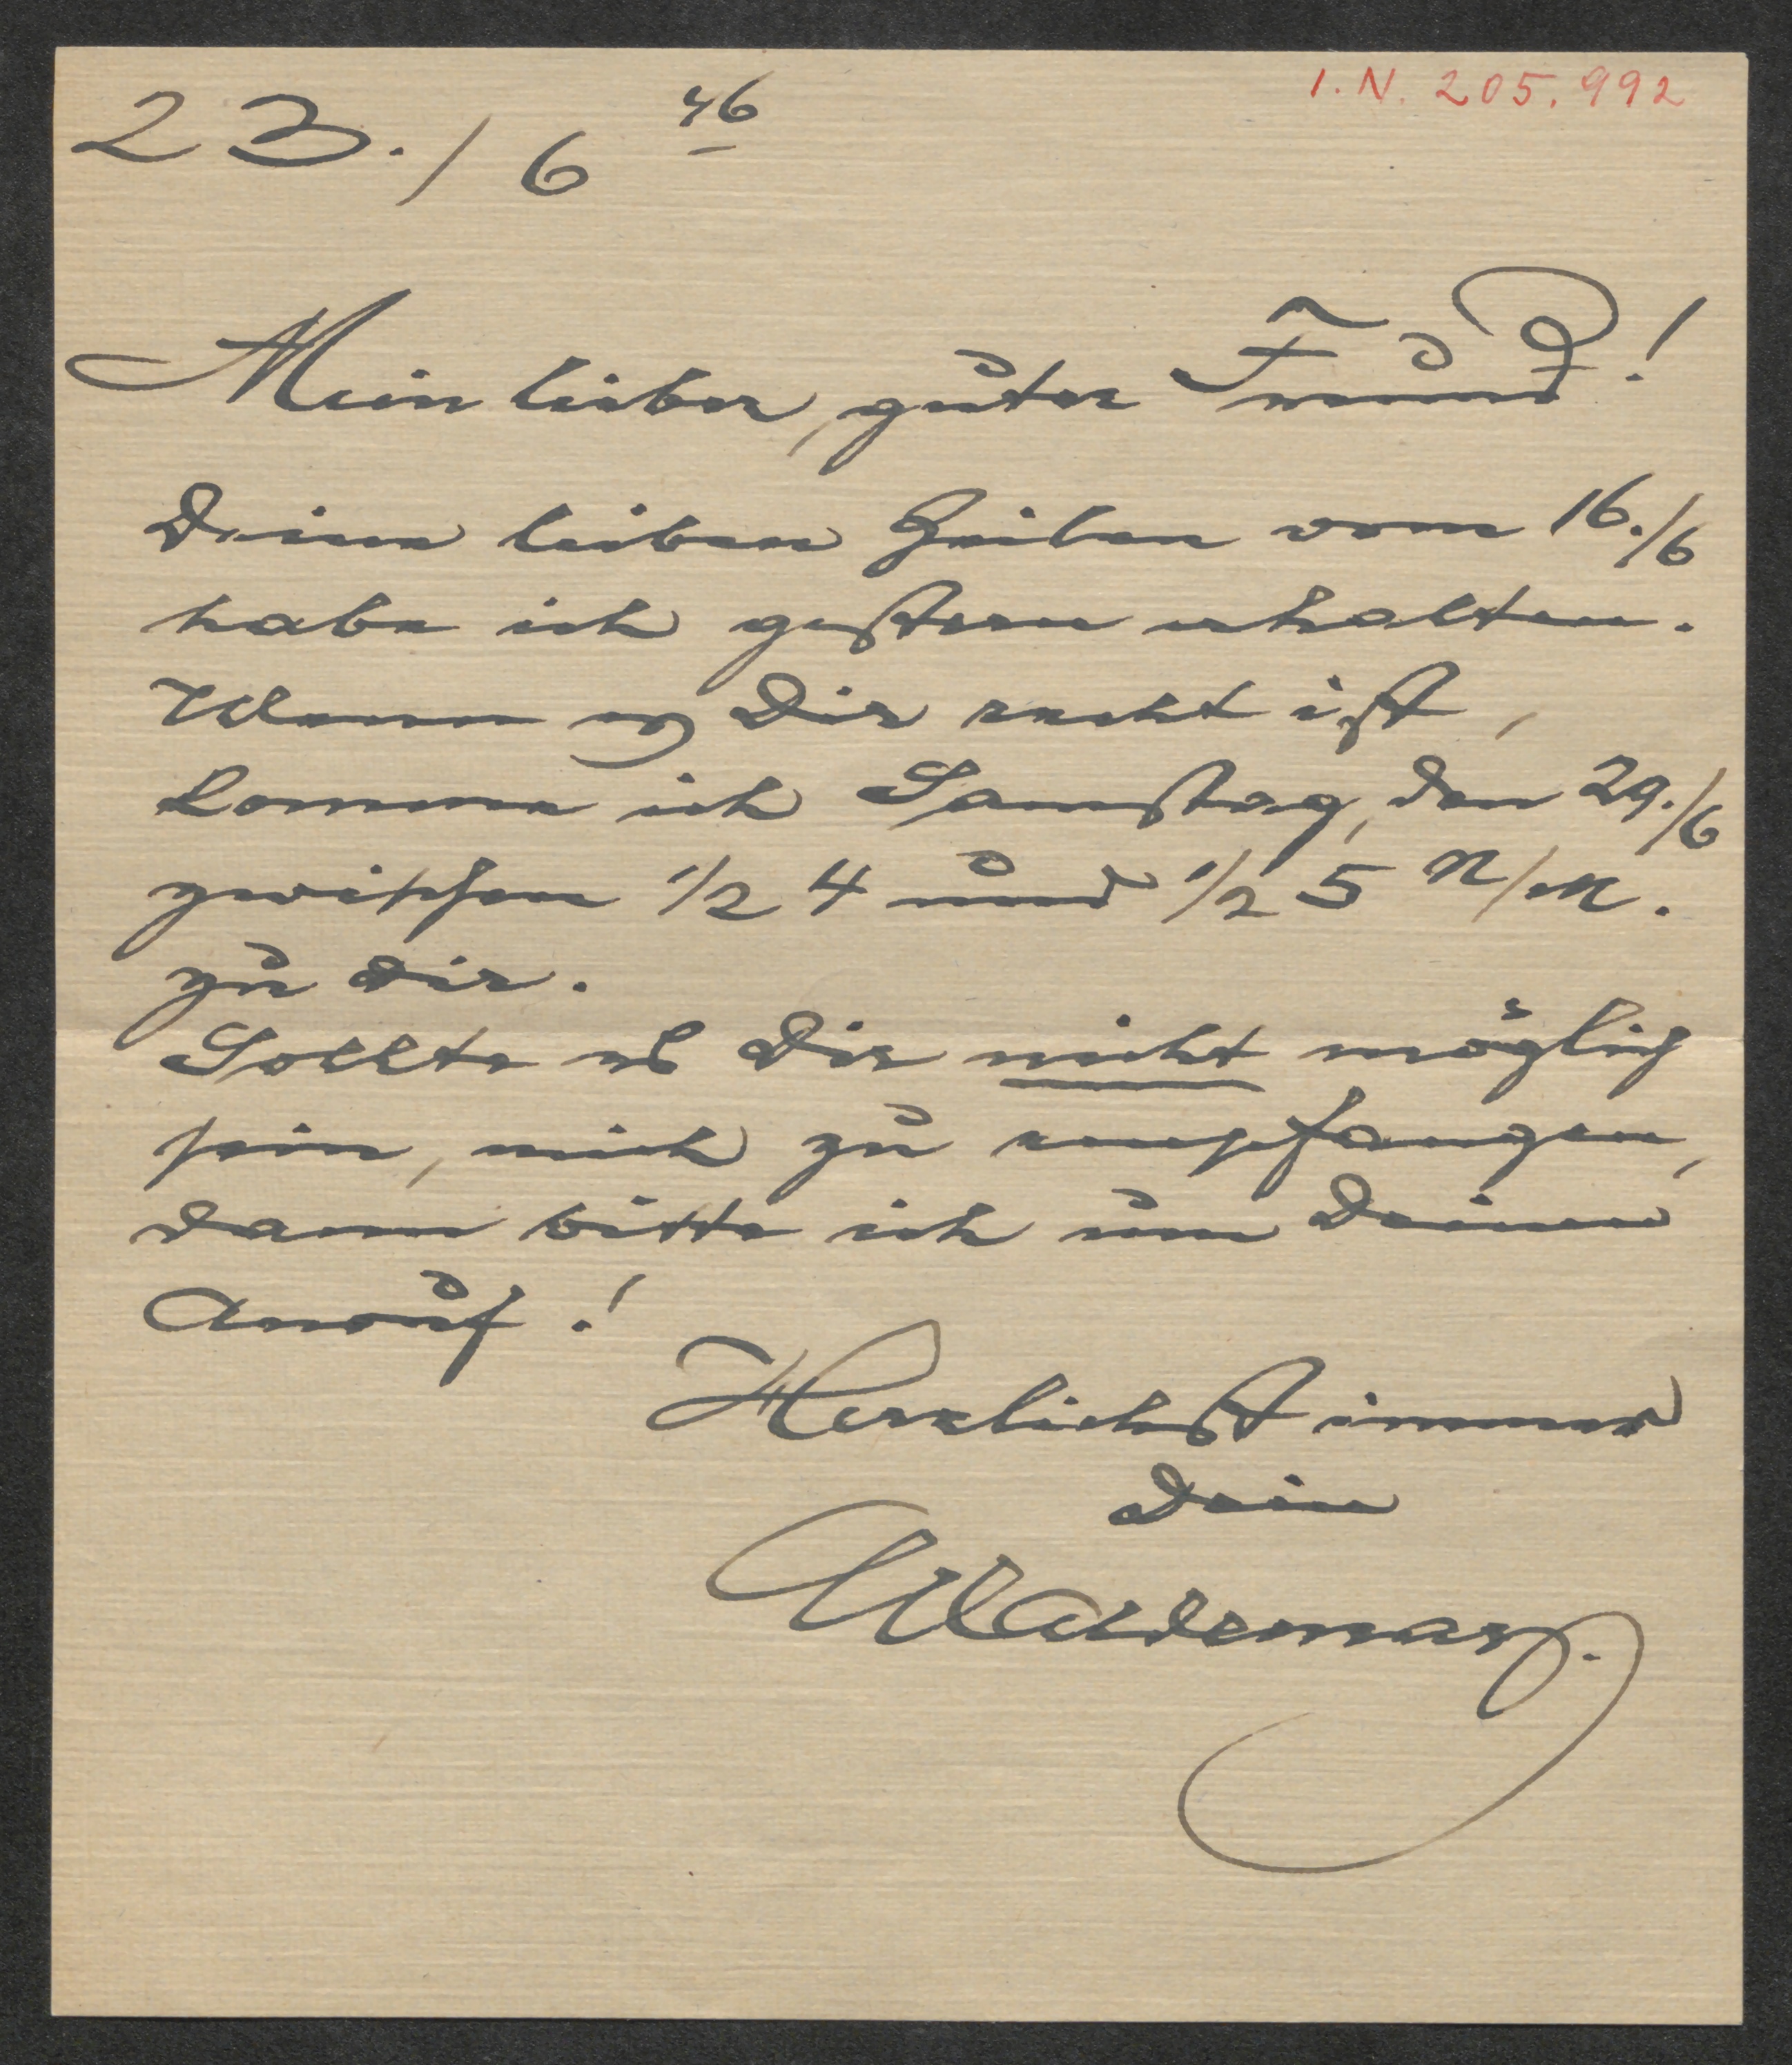 I.N. 205.992
23./6 46
Mein lieber, guter Freund!
Deine lieben Zeilen vom 16./6
habe ich gestern erhalten.
Wenn es Dir recht ist,
komme ich Samstag, den 29./6
zwischen 1/2 4 und 1/2 5 N/M.
zu Dir.
Sollte es Dir nicht möglich
sein, mich zu empfangen,
dann bitte ich um Deinen
Anruf!
Herzlichst immer
Dein
Waldemar.